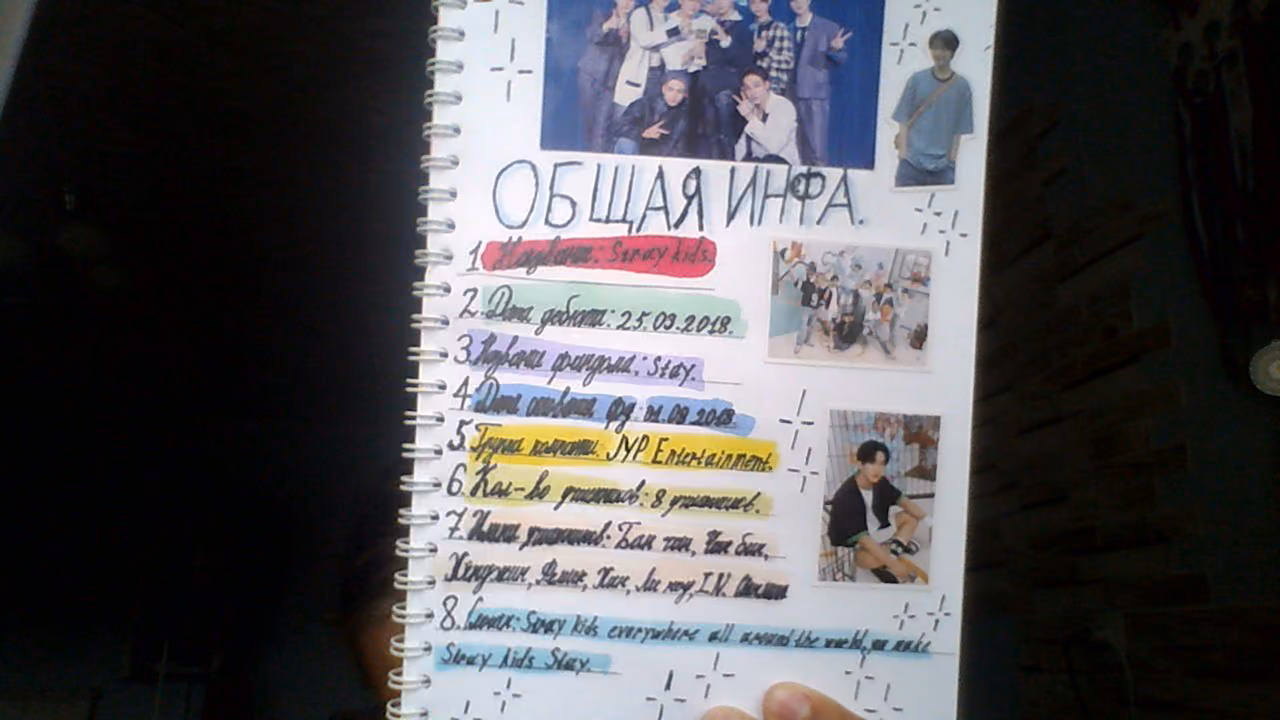 ОБЩАЯ ИНФА.
1 Название: Stray kids.
2. Дата дебюта: 25.03.2018.
3. Название фандома: Stay.
4. Дата фд: 01.08.2018.
5. Группа компании: JYP Entertainment.
6. Кол-во участников: 8 участников.
7. Имена участников: Бан чан, Чан бин,
Хёнджин, Феликс, Хан, Ли ноу, I.N.
8. Слоган: Stray kids everywhere all around the world, make
Stray kids Stay.